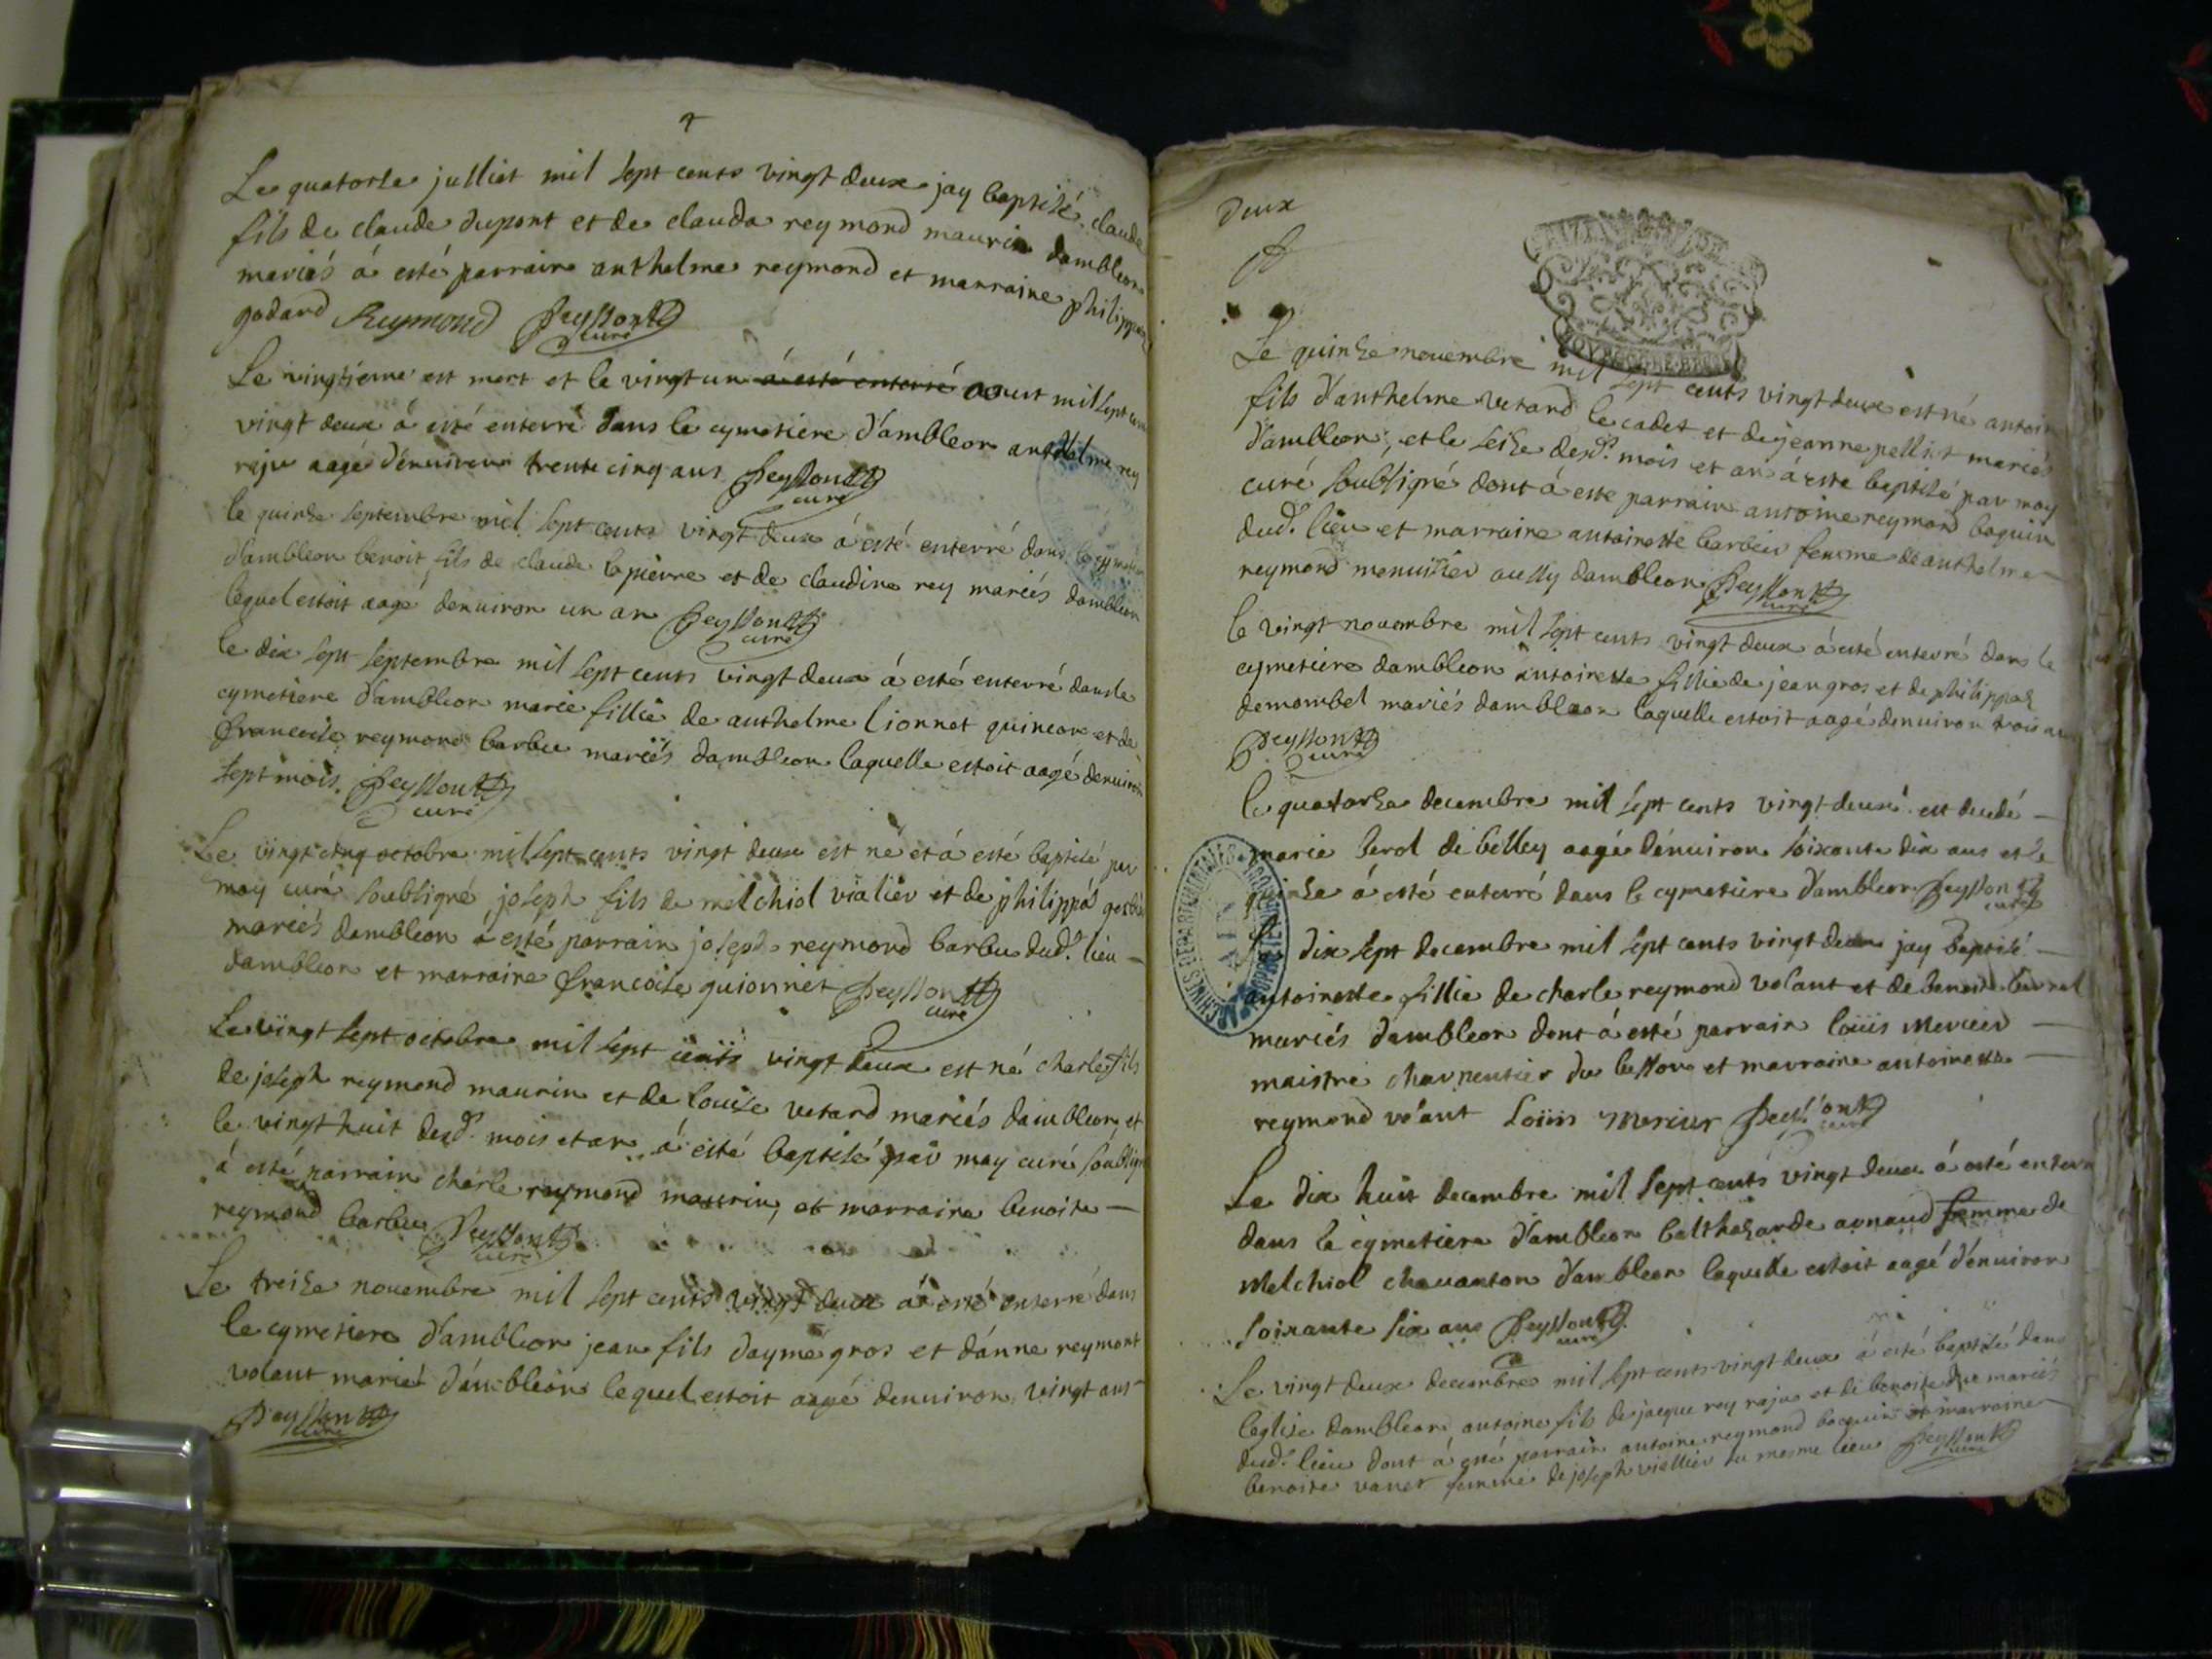 Le quatorse julliet mil sept cents vingt deux jay baptisé claude
fils de claude dupont et de clauda reymond maurin dambleon
mariés á esté parrain anthelme reymond et marraine philippaz
godard Reymond Peysson curé
Le vingtieme est mort et le vingt un á esté enterré aoust mil sept cents
vingt deux á esté enterré dans le cymetiere d'ambleon anthelme rey
raju aagé d'enuiron trente cinq ans Peysson curé
le quinse septembre mil sept cents vingt deux á esté enterré dans le cymetiere
d'ambleon benoit fils de claude lapierre et de claudine rey mariés dambleon
lequel estoit aagé denuiron un an Peysson curé
le dix sept septembre mil sept cents vingt deux á esté enterré dans le
cymetiere d'ambleon marie fillie de anthelme lionnet quinson et de
francoise reymond barbu mariés dambleon laquelle estoit aagé denuiron
sept mois. Peysson curé
Le vingt cinq octobre mil sept cents vingt deux est né et á esté baptisé par
moy curé soubsigné joseph fils de melchiol vialier et de philippá
mariés dambleon á esté parrain joseph reymond barbu dud. lieu
dambleon et marraine francoise guionnet Peysson curé
Le vingt sept octobre mil sept cents vingt deux est né charle fils
de joseph reymond maurin et de louise vetard mariés dambleon, et
le vingt huit desd. mois et an á esté baptisé par moy curé soubsigné
á esté parrain charle reymond maurin, et marraine benoite
reymond barbu Peysson curé
Le treise nouembre mil sept cents vingt deux á esté enterré dans
le cymetiere d'ambleon jean fils dayme gros et dánne reymont
volant marié d'ámbleon lequel estoit aagé denuiron vingt ans
Peysson curé
Deux
Le quinse nouembre mil sept cents vingt deux est né antoine
fils d'anthelme vetard le cadet et de jeanne pellist mariés
d'ambleon, et le seise desd. mois et an á esté baptisé par moy
curé soubsigné dont á esté parrain antoine reymond boquin
dud. lieu et marraine antoinette barbier femme de anthelme
reymond menuisier aussy dambleon Peysson curé
le vingt nouembre mil sept cents vingt deux á esté enterré dans le
cymetiere dambleon antoinette fillie de jean gros et de philippaz
demombel mariés dambleon laquelle estoit aagé denuiron trois ans
Peysson curé
le quatorse decembre mil sept cents vingt deux est decedé
marie berol de belley aagé dénuiron soixante dix ans et le
quinse á esté enterré dans le cymetiere d'ambleon Peysson curé
dix sept decembre mil sept cents vingt deux jay baptisé
antoinette fillie de charle reymond volant et de benoite
mariés dambleon dont á esté parrain loüis mercier
maistre charpentier du et marraine antoinette
reymond volant Loüis Mercier Peysson curé
Le dix huit decembre mil sept cents vingt deux á esté enterré
dans le cymetiere d'ambleon balthasarde arnaud femme de
Melchiol chauanton d'ambleon laquelle estoit aagé d'enuiron
soixante six ans Peysson curé
Le vingt deux decembre mil sept cents vingt deux á esté baptisé dans
leglise dambleon antoine fils de jacque rey rajue et de benoite mariés
dud. lieu dont á esté parrain antoine reymond bocquin et marraine
benoite vanet femme de joseph viallier du mesme lieu Peysson curé
ARCHIVES DEPARTEMENTALES
AIN
PROPRIETE PUBLIQUE